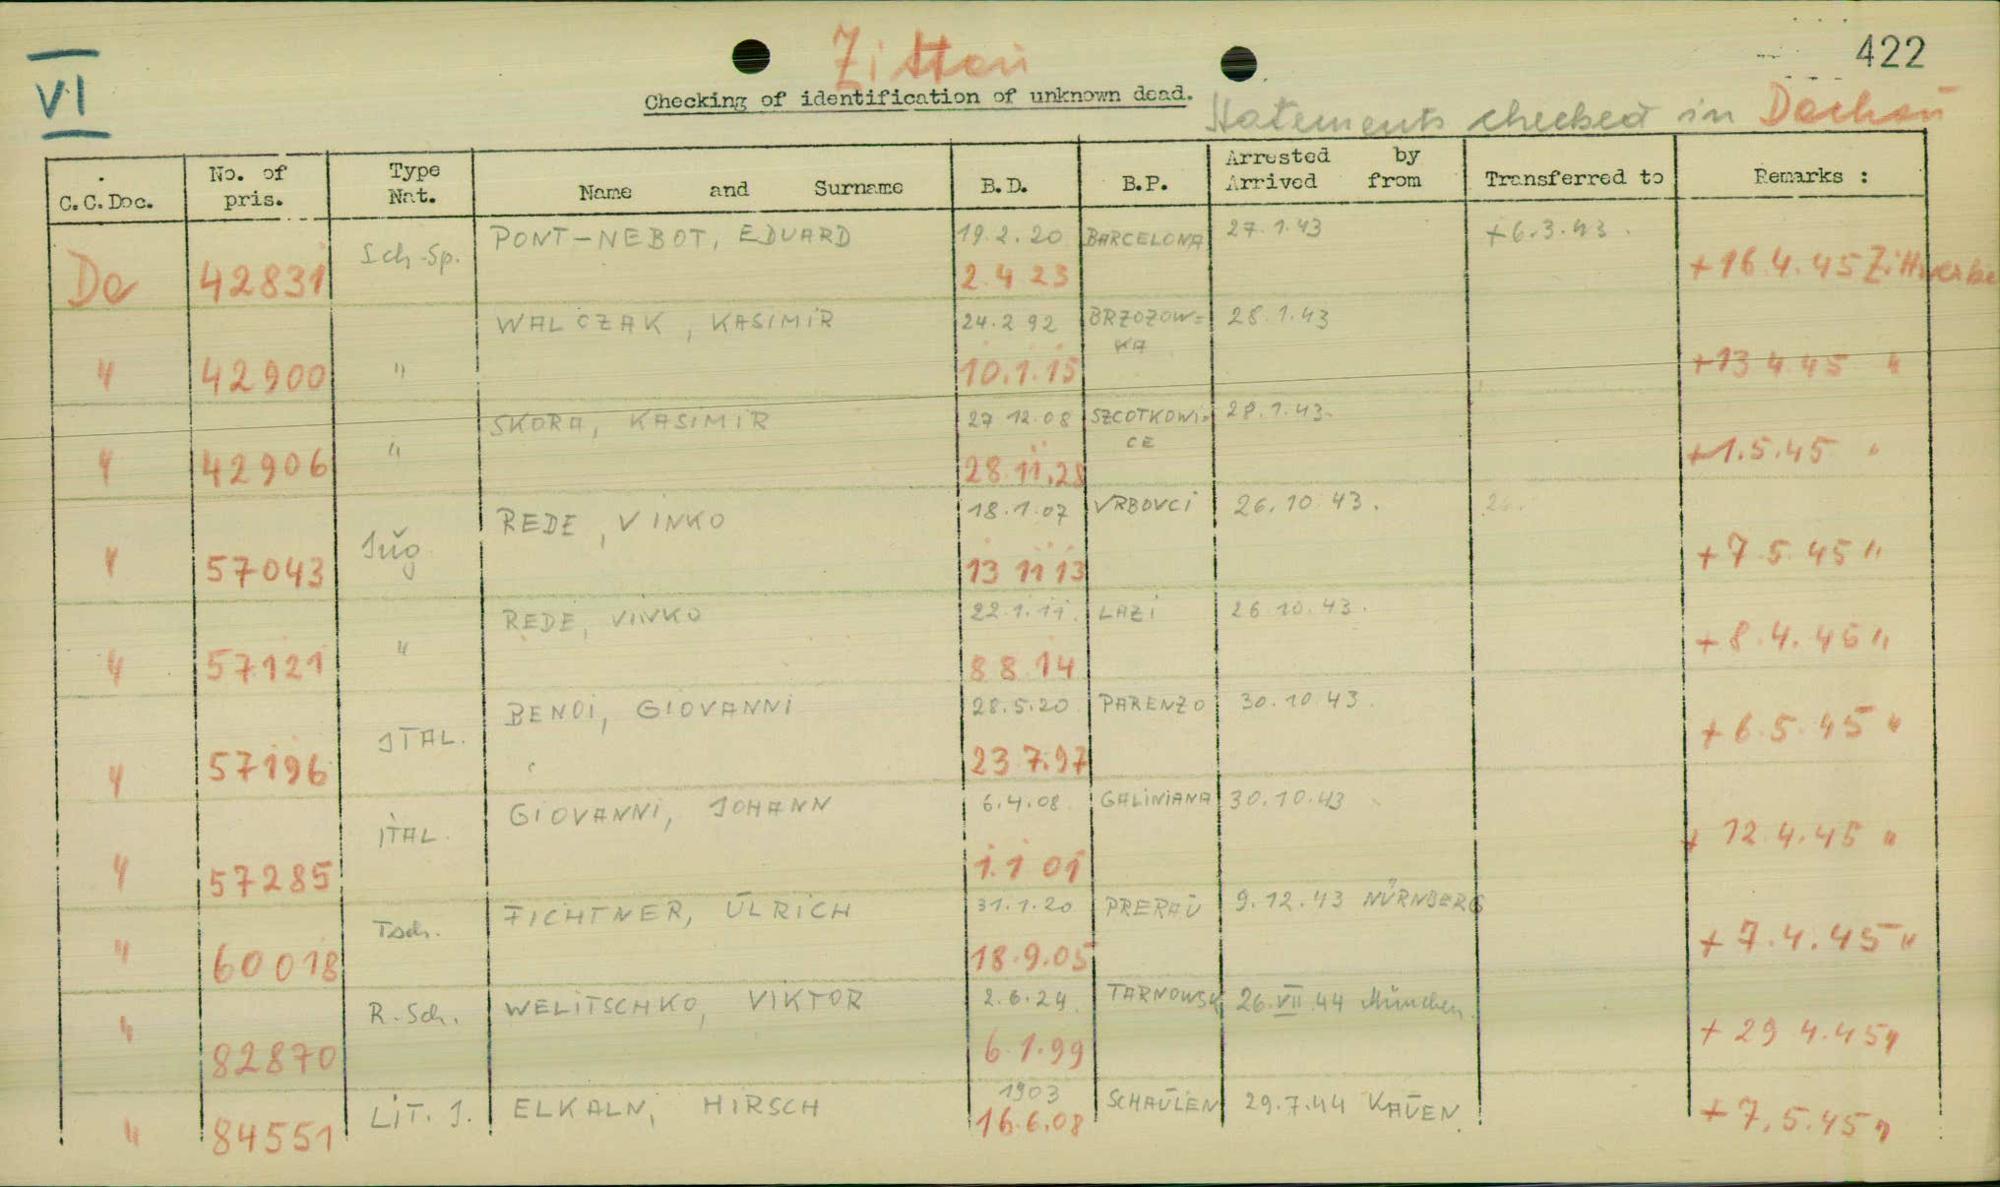 VI
Zittau
422
Checking of identification of unknown dead.
Statements checked in Dachau
C.C.Doc. No. of pris. Type Nat. Name and Surname B.D. B.P. Arrested by Arrived from Transferred to Remarks :
Sch-Sp. PONT-NEBOT, EDUARD 19.2.20 BARCELONA 27.1.43 +6.3.43.
Da 42831 2.4 23 +16.4.45 Zittwerke
WALCZAK, KASIMIR 24.2 92 BRZOZOW=KA 28.1.43
" 42900 " 10.1.15 +13 4.45 "
SKORA, KASIMIR 27 12.08 SZCOTKOWI-CE 28.1.43.
" 42906 " 28.11.28 +1.5.45 "
REDE, VINKO 18.1.07 VRBOVCI 26.10.43. 26.
" 57043 Jug 13 11 13 +7.5.45 "
REDE, VINKO 22.1.11. LAZI 26.10.43.
" 57121 " 8 8.14 +8.4.45 "
BENCI, GIOVANNI 28.5.20 PARENZO 30.10.43.
" 57196 ITAL. 23 7.97 +6.5.45 "
GIOVANNI, JOHANN 6.4.08 GALINIANA 30.10.43
" 57285 ITAL. 1.1 01 + 12.4.45 "
FICHTNER, ULRICH 31.1.20 PRERAU 9.12.43 NÜRNBERG
" 60018 Tsch. 18.9.05 +7.4.45 "
WELITSCHKO, VIKTOR 2.6.24. TARNOWSK 26.VII.44 München.
" 82870 R.Sch. 6.1.99 +29 4.45 "
LIT. J. ELKALN, HIRSCH 1903 SCHAULEN 29.7.44 KAUEN.
" 84551 16.6.08 +7.5.45 "